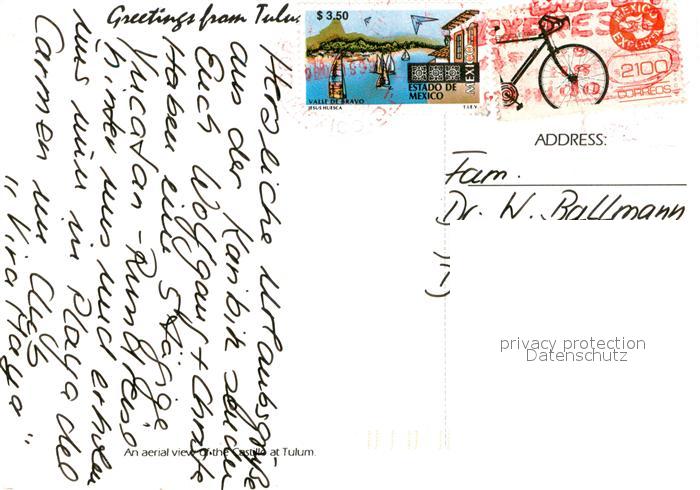 Greetings from Tulum
$ 3.50
VALLE DE BRAVO
JESUS HUESCA
ESTADO DE
MEXICO
MEXICO
T.I.E.V.
MEXICO
EXPORTA
2100
CORREOS
ADDRESS:
Fam.
Dr. W. Ballmann
privacy protection
Datenschutz
Herzliche Urlaubsgrüße,
aus der Karibik senden
Euch Wolfgang + Christe
Haben eine 5tägige
Yucatan-Rundreise
hinter uns und erholen
uns nun in Playa del
Carmen im Club
"Viva Maya"
An aerial view of the Castillo at Tulum.